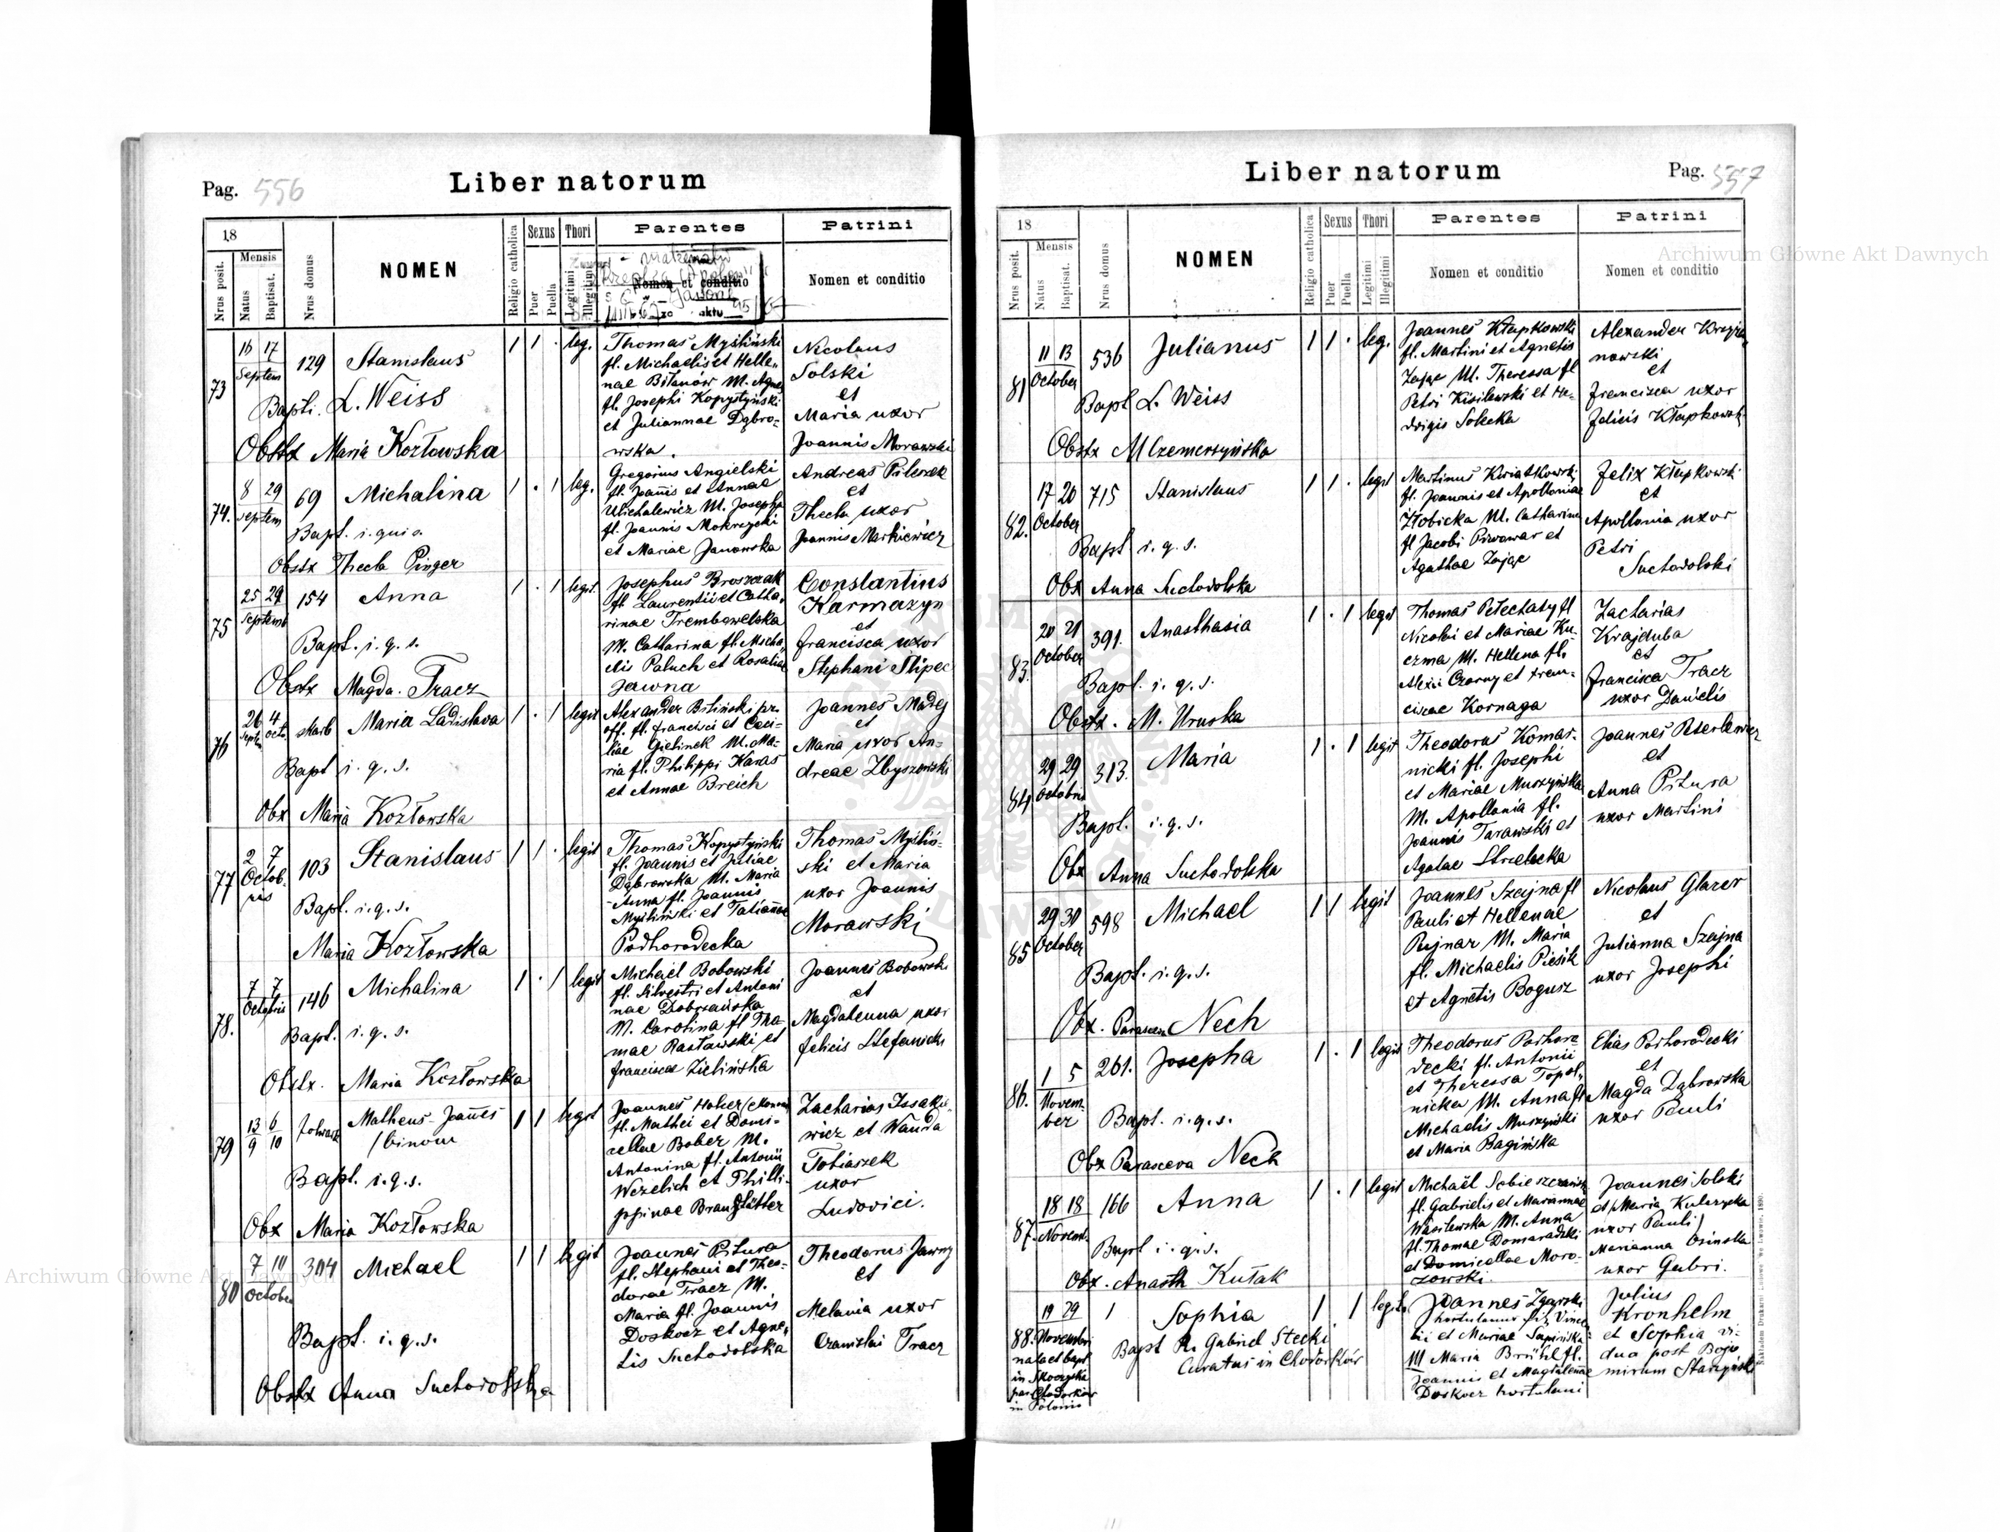 Pag. 556
Liber natorum
18
Nrus posit.
Mensis
Natus
Baptisat.
Nrus domus
NOMEN
Religio catholica
Sexus
Puer
Puella
Thori
Legitimi
Illegitimi
Parentes
Nomen et conditio
Patrini
Nomen et conditio
73
16 17
Septem
129
Stanislaus
1 1 . leg.
Bapti. L. Weiss
Obstx Maria Kozłowska
Thomas Myśliński
fl. Michaelis et Helle-
nae Bilanów M. Agnes
fl. Josephi Kopystyński
et Juliannae Dąbro-
wska.
Nicolaus
Solski
et
Maria uxor
Joannis Morawski
74.
8 29
Septem
69
Michalina
1 . 1 leg.
Bapt. i. qui s.
Obstx Thecla Pinger
Gregorius Angielski
fl. Joannis et Annae
Michalewicz M. Josepha
fl. Joannis Mokrzycki
et Mariae Janowska
Andreas
et
Thecla uxor
Joannis Markiewicz
75
25 29
Septemb
154
Anna
1 . 1 legit.
Bapt. i. q. s.
Obstx Magda. Tracz
Josephus Broszczak
fl. Laurentii et Catha-
rinae Trembowelska
M. Catharina fl. Micha-
elis Paluch et Rosaliae
Jawna
Constantinus
Karmazyn
et
francisca uxor
Stephani Slipec
76
26 4
Septem octo.
skarb
Maria Ladislava
1 . 1 legit
Bapt i. q. s.
Obx Maria Kozłowska
Alexander Biliński pr.
off. fl. francisci et Ceci-
liae Gielinek M. Ma-
ria fl. Philippi Karas
et Annae Breich
Joannes Madej
et
Maria uxor An-
dreae Zbyszewski
77
2 7
Octob-
ris
103
Stanislaus
1 1 . legit
Bapt. i. q. s.
Maria Kozłowska
Thomas Kopystyński
fl. Joannis et Juliae
Dąbrowska M. Maria
Anna fl. Joannis
Myśliński et Tatiannae
Podhorodecka
Thomas Myśliń-
ski et Maria
uxor Joannis
Morawski
78.
7 7
Octobris
146
Michalina
1 . 1 legit
Bapt. i. q. s.
Obstx. Maria Kozłowska
Michael Bobowski
fl. Silvestri et Antoni
nae Dobrzańska
M. Carolina fl Tho-
mae Rasławski et
franciscae Zielińska
Joannes Bobowski
et
Magdalenna uxor
felicis Stefanicki
79
13 6
9 10
folwark
Matheus-Joannes
/binom
1 1 legit
Bapt. i. q. s.
Obx Maria Kozłowska
Joannes
fl. Mathei et Domi-
cellae Bober M.
Antonina fl. Antonii
Wezelich et Philli-
ppinae Brandstätter
Zacharias Issako-
wicz et Wanda
Tobiaszek
uxor
Ludovici.
80
7 10
October
304
Michael
1 1 legit
Bapt. i. q. s.
Obstx Anna Suchodolska
Joannes Pitura
fl. Stephani et Theo-
dorae Tracz M.
Maria fl. Joannis
Doskocz et Agne-
tis Suchodolska
Theodorus Jawny
et
Melania uxor
Stanislai Tracz
Liber natorum
Pag. 557
18
Nrus posit.
Mensis
Natus
Baptisat.
Nrus domus
NOMEN
Religio catholica
Sexus
Puer
Puella
Thori
Legitimi
Illegitimi
Parentes
Nomen et conditio
Patrini
Nomen et conditio
81
11 13
October
536
Julianus
1 1 . leg.
Bapt L. Weiss
Obstx M Czemerzyńska
Joannes Kłapkowski
fl. Martini et Agnetis
Zając M. Theressa fl
Petri Kisilewski et He-
dvigis Solecka
Alexander Krzyża-
nowski
et
francisca uxor
felicis Kłapkowski
82.
17 20
October
715
Stanislaus
1 1 . legit
Bapt i. q. s.
Obx Anna Suchodolska
Martinus Kwiatkowski
fl. Joannis et Apolloniae
Żłobicka M. Catharina
fl Jacobi Piwowar et
Agathae Zając
Felix Kłapkowski
et
Apollonia uxor
Petri
Suchodolski
83.
20 21
October
391.
Anasthasia
1 . 1 legit
Bapt. i. q. s.
Obstx. M. Uruska
Thomas Pełechaty fl
Nicolai et Mariae Ku-
czma M. Hellena fl.
Alexii Czorny et fran-
ciscae Kornaga
Zacharias
Krajduba
et
francisca Tracz
uxor Danielis
84.
29 29
October
313.
Maria
1 . 1 legit
Bapt. i. q. s.
Obx Anna Suchodolska
Theodorus Komar-
nicki fl. Josephi
et Mariae Muszyńska
M. Apollonia fl.
Joannis Tarawski et
Agatae Strzelecka
Joannes
et
Anna Pitura
uxor Martini
85
29 30
October
598
Michael
1 1 legit
Bapt. i. q. s.
Obx. Parascева Nech
Joannes Szajna fl
Pauli et Hellenae
Rejnar M. Maria
fl. Michaelis Piesik
et Agnetis Bogusz
Nicolaus Glazer
et
Julianna Szajna
uxor Josephi
86.
1 5
Novem-
ber
261.
Josepha
1 . 1 legit
Bapt. i. q. s.
Obx Parasceva Nech
Theodorus Podhoro-
decki fl. Antonii
et Theressa Topol-
nicka M. Anna fl
Michaelis Muszyński
et Maria Bagińska
Elias Podhorodecki
et
Magda Dąbrowska
uxor Pauli
87.
18 18
Novem.
166
Anna
1 . 1 legit
Bapt i. q. s.
Obx. Anasth Kułak
Michaël Sobieszczański
fl. Gabrielis et Mariannae
Wasilewska M. Anna
fl. Thomae Domaradzki
et Domicellae Moro-
zowski.
Joannes Solski
et Maria Kulczycka
uxor Pauli
Marianna Osinska
uxor Gabri.
88.
19 29
Novembri
nata et bapt
in Skoczyska
par Chodorkow
in Polonia
1
Sophia
1 1 legit.
Bapt R. Gabriel Stecki
Curatus in Chodorków
Joannes Zgarski
hortulanus fil. Vincen
tii et Mariae Sapińska
M Maria Brühl fl.
Joannis et Magdalenae
Doskocz hortulani
Julius
Kronhelm
et Sophia vi-
dua post Bojo
mirum Starzyński
Nakładem Drukarni Ludowej we Lwowie, 1890.
Archiwum Główne Akt Dawnych
Archiwum Główne Akt Dawnych